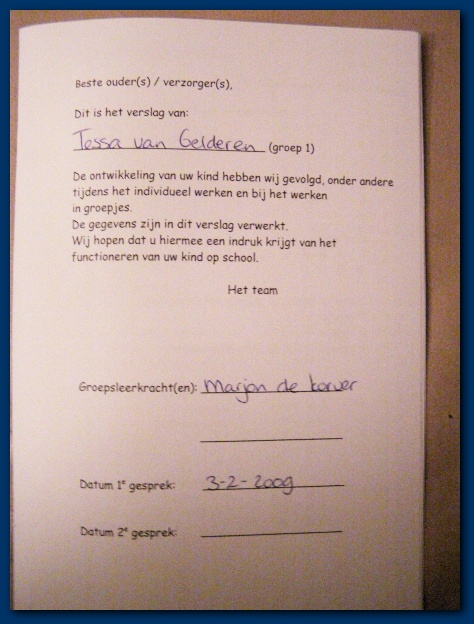 Beste ouder(s) / verzorger(s),
Dit is het verslag van:
Tessa van Gelderen (groep 1)
De ontwikkeling van uw kind hebben wij gevolgd, onder andere
tijdens het individueel werken en bij het werken
in groepjes.
De gegevens zijn in dit verslag verwerkt.
Wij hopen dat u hiermee een indruk krijgt van het
functioneren van uw kind op school.
Het team
Groepsleerkracht(en): Marjon de Korver
Datum 1e gesprek: 3-2-2009
Datum 2e gesprek: